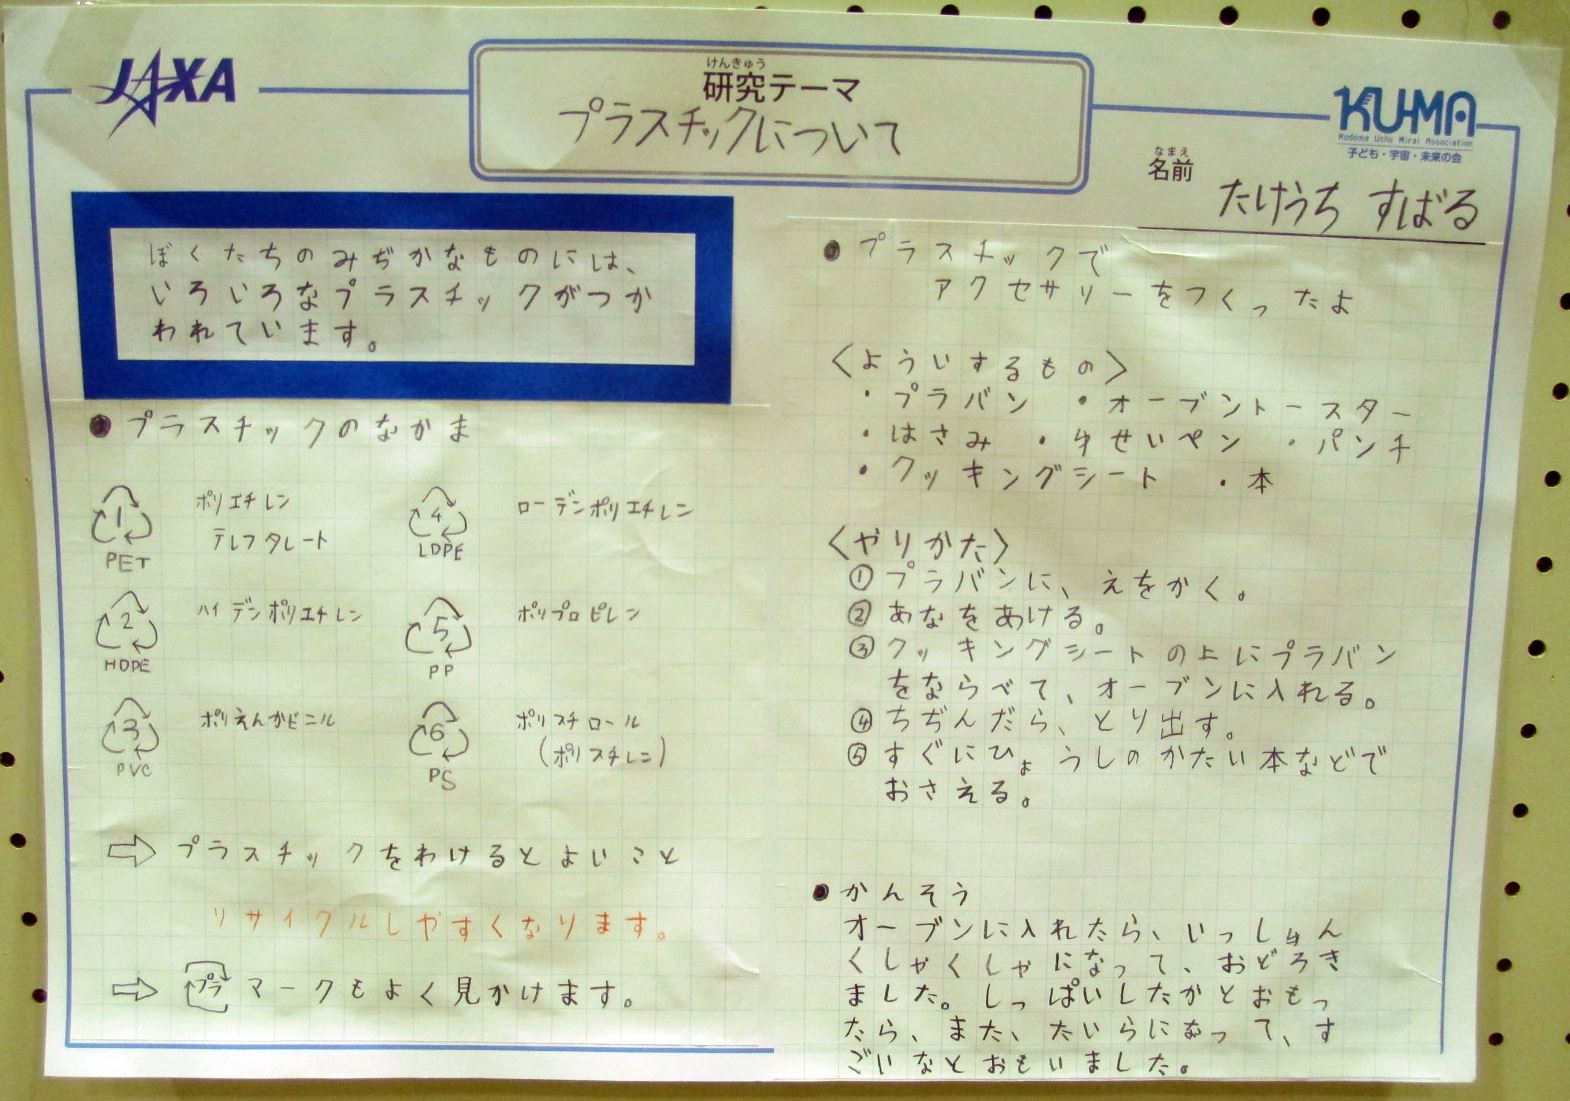 JAXA
けんきゅう
研究テーマ
プラスチックについて
KU-MA
Kodomo Uchu Mirai Association
子ども・宇宙・未来の会
なまえ
名前
たけうち すばる
ぼくたちのみぢかなものには、
いろいろなプラスチックがつか
われています。
●プラスチックのなかま
1 PET ポリエチレン
テレフタレート
2 HDPE ハイデンポリエチレン
3 PVC ポリえんかビニル
4 LDPE ローデンポリエチレン
5 PP ポリプロピレン
6 PS ポリスチロール
(ポリスチレン)
⇨ プラスチックをわけるとよいこと
リサイクルしやすくなります。
⇨ プラ マークもよく見かけます。
●プラスチックで
アクセサリーをつくったよ
〈よういするもの〉
・プラバン ・オーブントースター
・はさみ ・ゆせいペン ・パンチ
・クッキングシート ・本
〈やりかた〉
①プラバンに、えをかく。
②あなをあける。
③クッキングシートの上にプラバン
をならべて、オーブンに入れる。
④ちぢんだら、とり出す。
⑤すぐにひょうしのかたい本などで
おさえる。
●かんそう
オーブンに入れたら、いっしゅん
くしゃくしゃになって、おどろき
ました。しっぱいしたかとおもっ
たら、また、たいらになって、す
ごいなとおもいました。